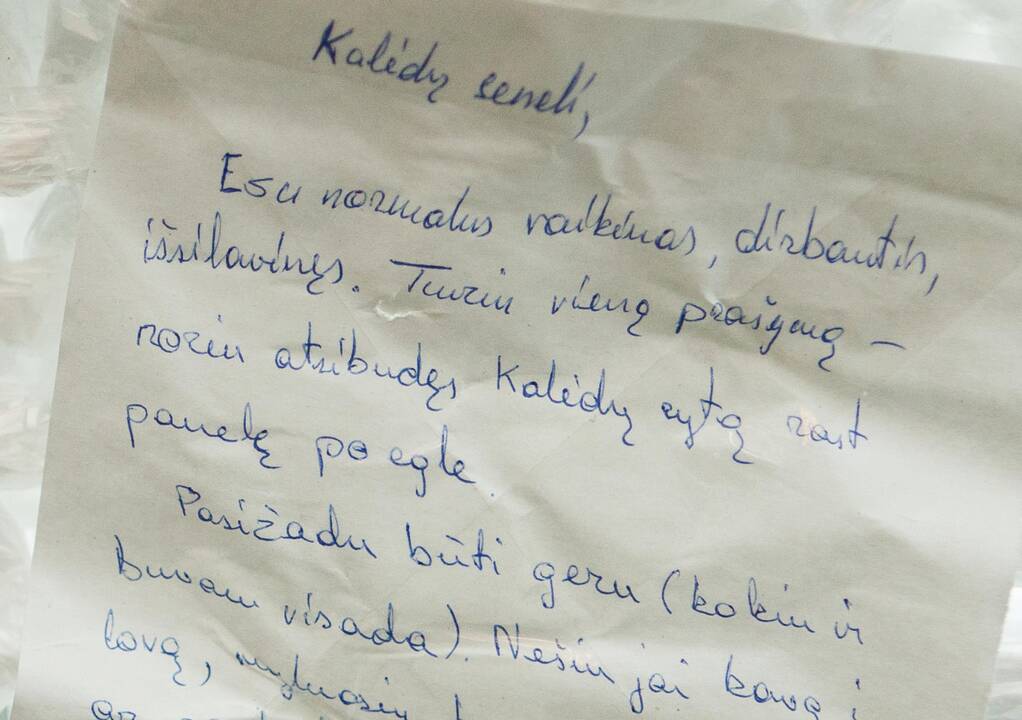 Kalėdų seneli,
Esu normalus vaikinas, dirbantis,
išsilavinęs. Turiu vieną prašymą –
noriu atsibudęs Kalėdų rytą rast
panelę po egle.
Pasižadu būti geru (kokiu ir
buvau visada). Nešiu jai kavą į
lovą, myluosiu
ar